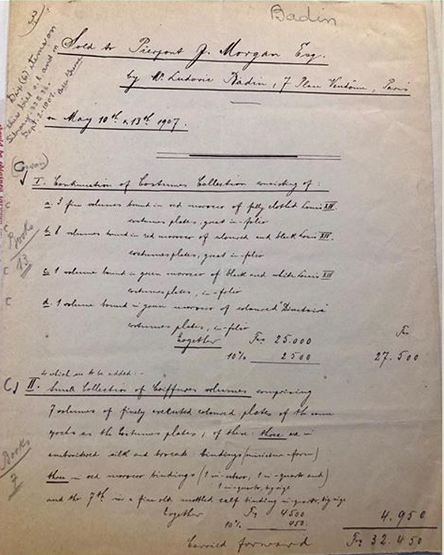 Badin
Sold to Pierpont J. Morgan Esq.
by Mr. Ludovic Badin, 7 Place Vendôme, Paris
on May 10th & 13th 1907.
I. Continuation of Costumes Collection consisting of:
a. 3 fine volumes bound in red morocco of fifty clothed Louis XIV
costumes plates, great in-folio
b. 8 volumes bound in red morocco of coloured and black Louis XIV.
costumes plates, great in-folio
c. 1 volume bound in green morocco of black and white Louis XIII
costumes plates, in-folio
d. 1 volume bound in green morocco of coloured Directoire
costumes plates, in-folio
Together Frs 25.000 Frs
10% 2500 27.500
Books
13
to which are to be added:
II. Small Collection of Coiffures volumes comprising
7 volumes of finely executed coloured plates of the same
as the Costumes plates, of these: three are in
embroidered silk and brocade bindings
three in red morocco bindings (1 in-octavo, 1 in-quarto and
1 in-quarto,
and the 7th in a fine old mottled calf binding in-quarto,
Together Frs 4500 4.950
10% 450
Carried forward Frs 32.450
Books
7